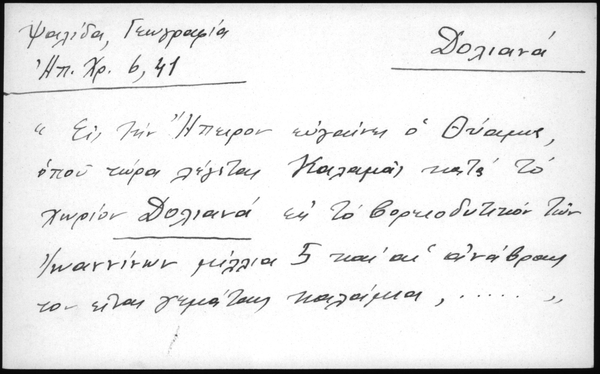 Ψαλίδα, Γεωγραφία
Ἠπ. Χρ. 6, 41
Δολιανά
« Εἰς τὴν Ἤπειρον εὐγαίνει ὁ Θύαμις,
ὁποῦ τώρα λέγεται Καλαμᾶς κατὰ τὸ
χωρίον Δολιανά εἰς τὸ βορειοδυτικόν τῶν
Ἰωαννίνων μίλλια 5 καὶ αἱ ἀνάβραις
του εἶναι γεμάταις καλάμια, ..... »